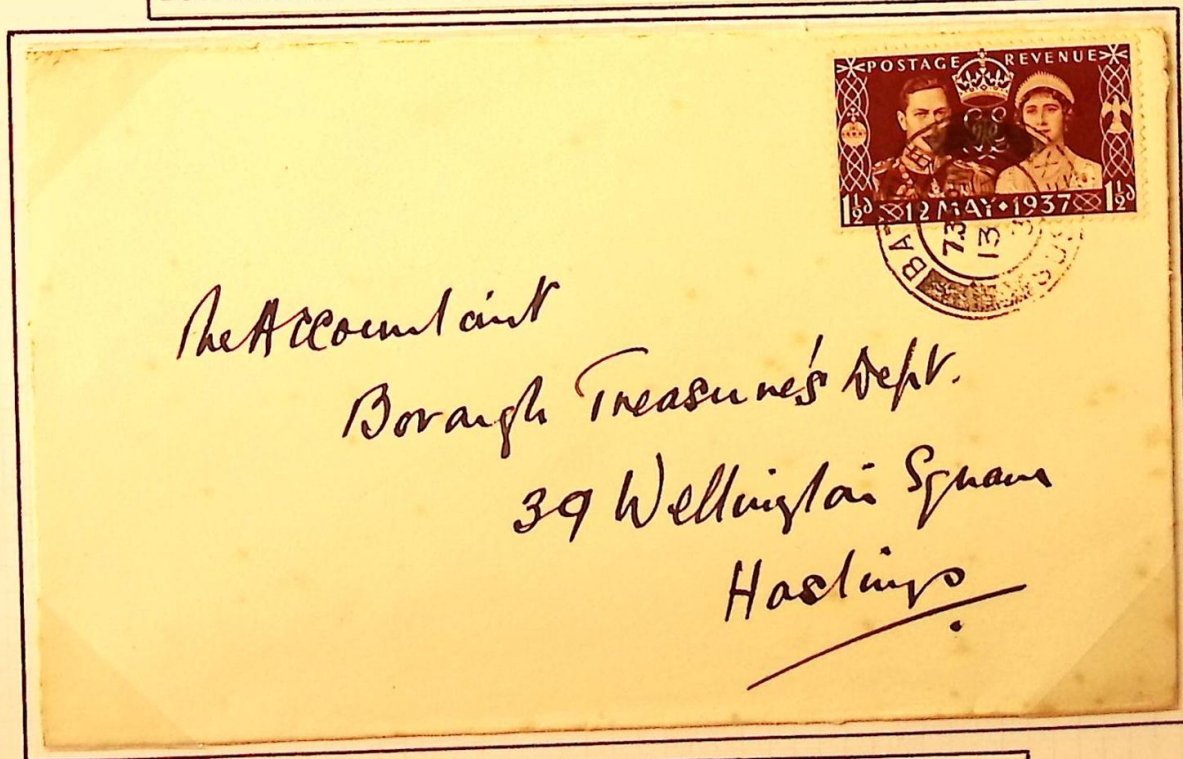 POSTAGE REVENUE
1½d 12 MAY 1937 1½d
The Accountant
Borough Treasurer's Dept.
39 Wellington Square
Hastings